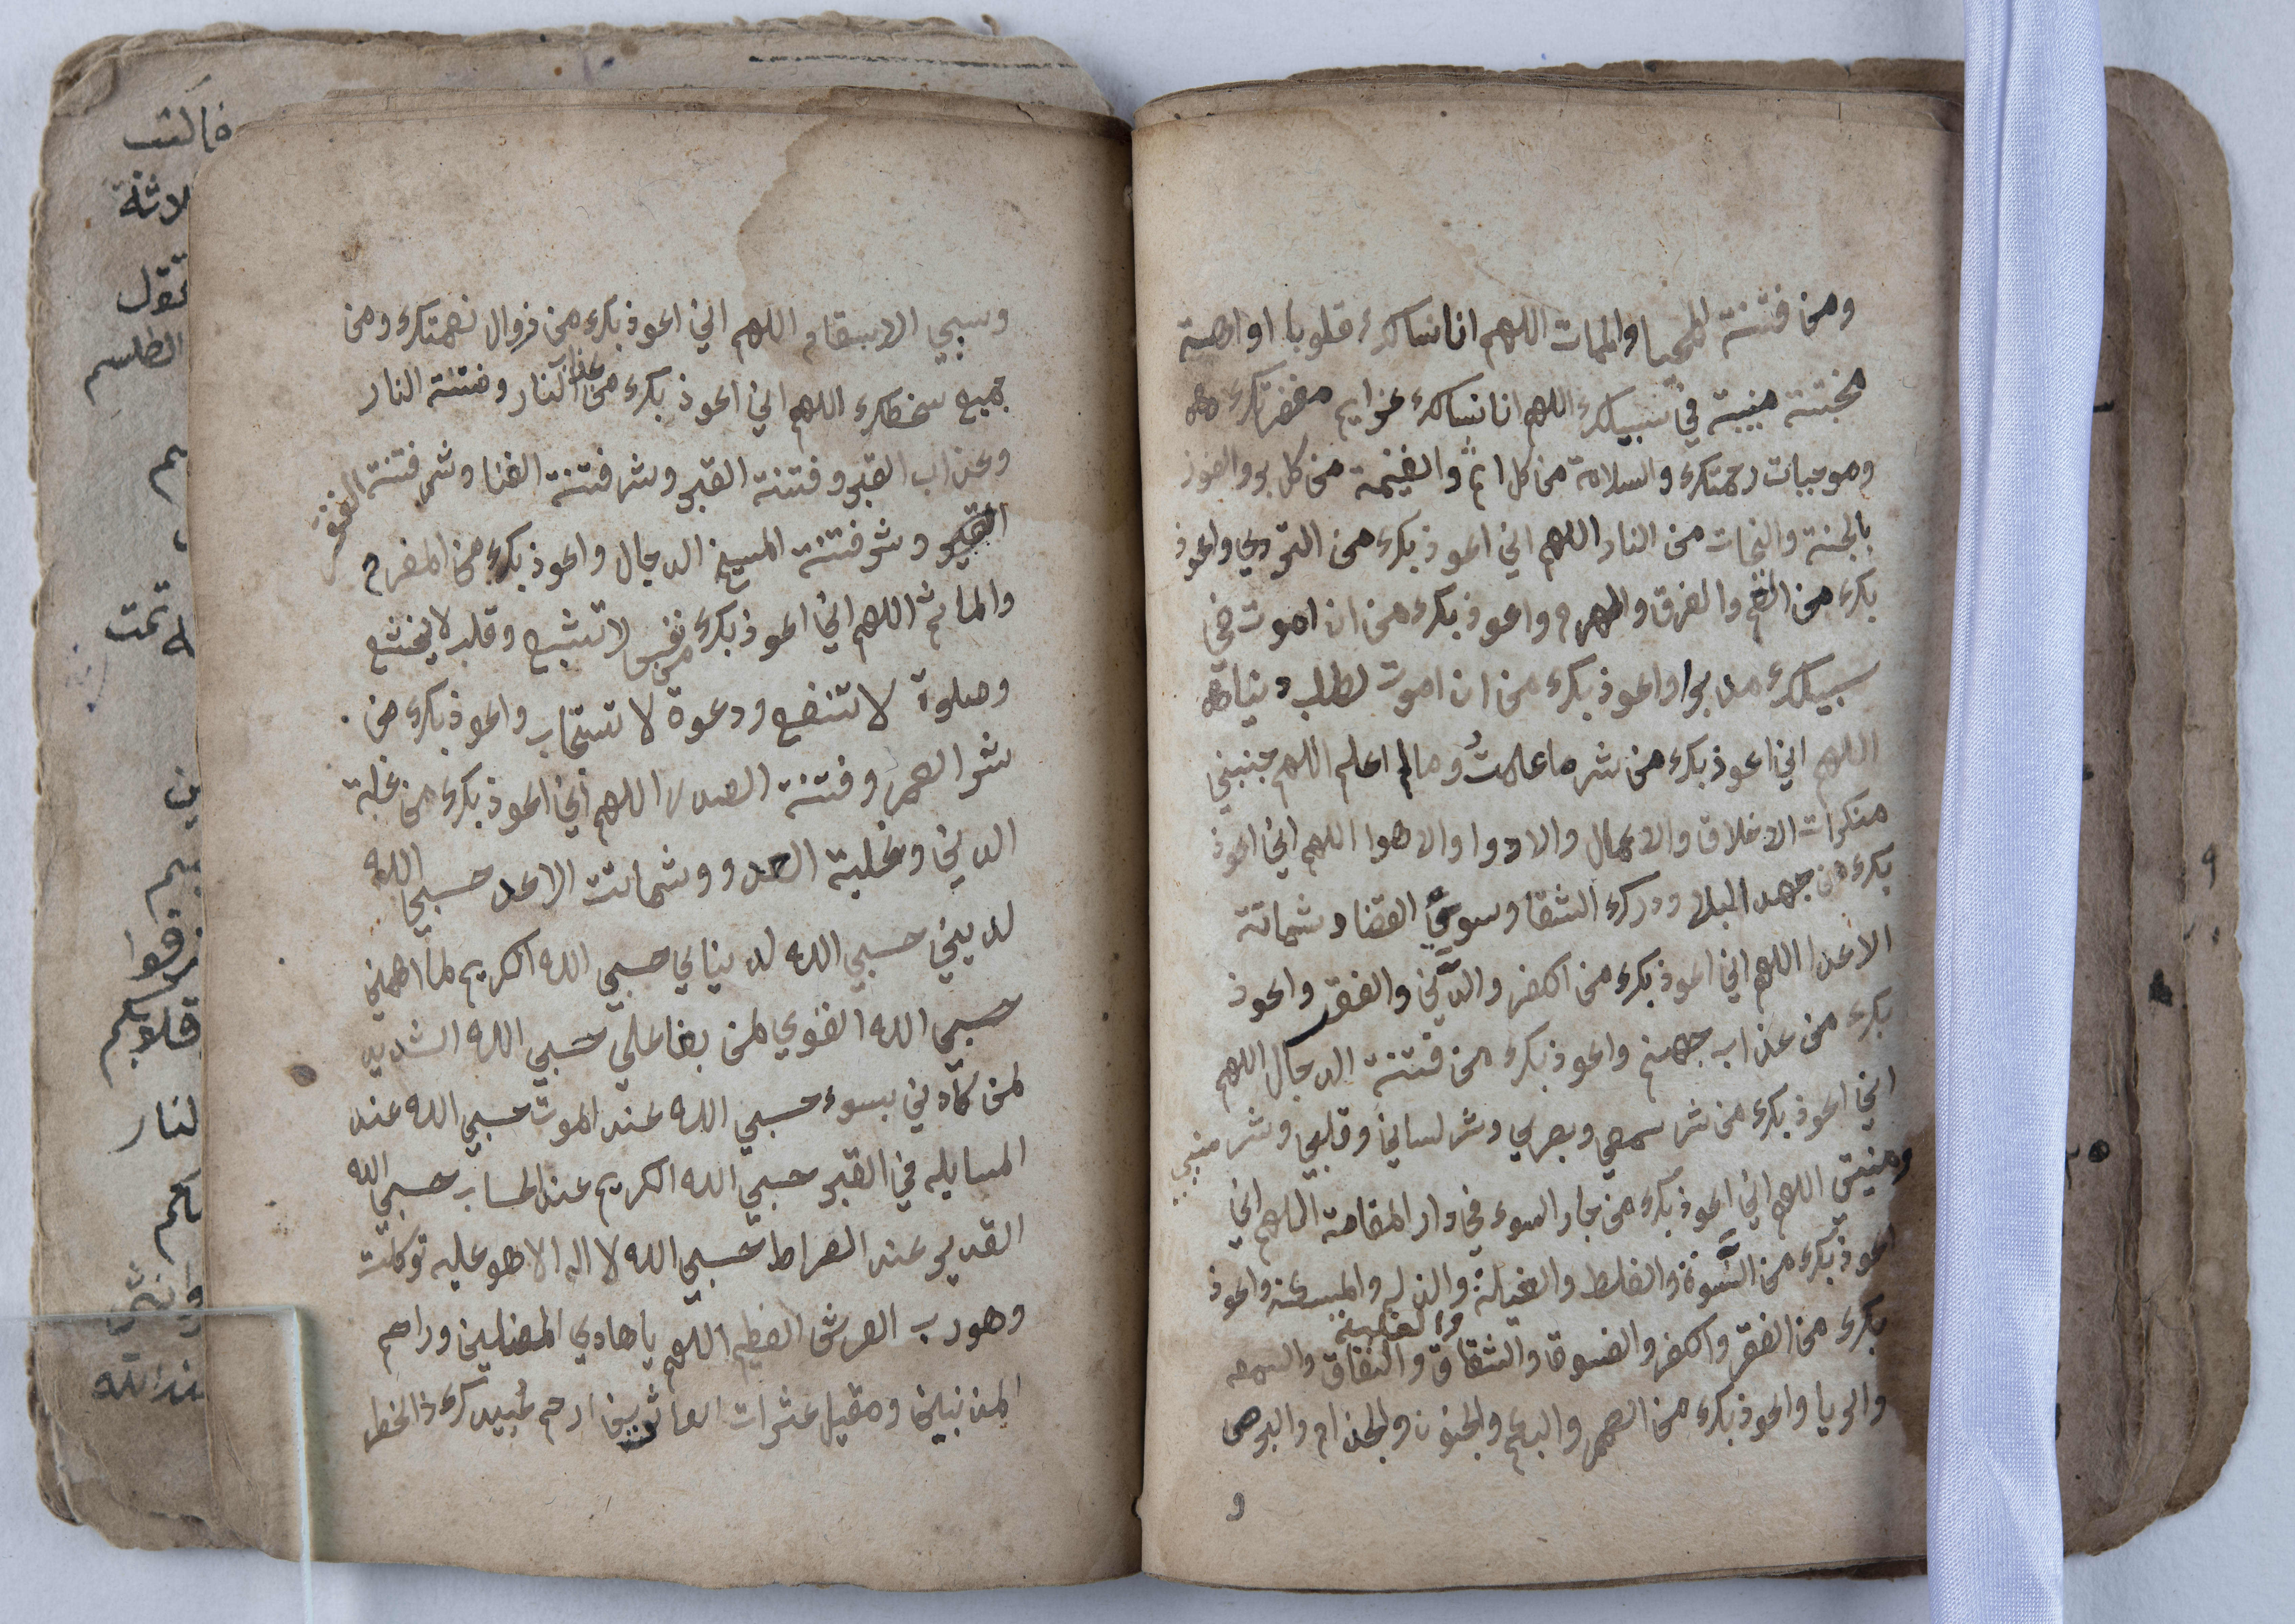 ومن فتنة المحيا والممات اللهم انا نسالك قلوبا اواهة
مخبتة منيبة في سبيلك اللهم انا نسالك عزايم مغفرتك
وموجبات رحمتك والسلامة من كل اثم والغنيمة من كل بر والفوز
بالجنة والنجات من النار اللهم اني اعوذ بك من التردي واعوذ
بك من الغم والغرق والهرم واعوذ بك من ان اموت في
سبيلك مدبرا واعوذ بك من ان اموت لطلب دنيا
اللهم اني اعوذ بك من شر ما علمت وما لم اعلم اللهم جنبني
منكرات الاخلاق والاعمال والادوا والاهوا اللهم اني اعوذ
بك من جهد البلا ودرك الشقا وسوء القضا وشماتة
الاعدا اللهم اني اعوذ بك من الكفر والدين والفقر واعوذ
بك من عذاب جهنم واعوذ بك من فتنة الدجال اللهم
اني اعوذ بك من شر سمعي وبصري وشر لساني وقلبي وشر منيي
ومنيتي اللهم اني اعوذ بك من جار السوء في دار المقامة اللهم اني
اعوذ بك من القسوة والغلط والعيلة والذله والمسكنه واعوذ
بك من الفقر والكفر والفسوق والشقاق والنفاق والسمعه
والريا واعوذ بك من الصمم والبكم والجنون والجذام والبرص
و
وسيي الاسقام اللهم اني اعوذ بك من زوال نعمتك ومن
جميع سخطك اللهم اني اعوذ بك من عذاب النار وفتنة النار
وعذاب القبر وفتنة القبر وشر فتنة الغنا وشر فتنة الفقر
القبر وشر فتنة المسيح الدجال واعوذ بك من المغرم
والماثم اللهم اني اعوذ بك من نفس لا تشبع وقلب لا يخشع
وصلوة لا تنفع ودعوة لا تستجاب واعوذ بك من
شر العمر وفتنة الصدر اللهم اني اعوذ بك من غلبة
الدين وغلبة العدو وشماتت الاعد حسبي الله
لديني حسبي الله لدنياي حسبي الله الكريم لما اهمني
حسبي الله القوي لمن بغا علي حسبي الله الشديد
لمن كادني بسوء حسبي الله عند الموت حسبي الله عند
المسايله في القبر حسبي الله الكريم عند الحساب حسبي الله
القدير عند الصراط حسبي الله لا اله الا هو عليه توكلت
وهو رب العرش العظيم اللهم يا هادي المضلين وراحم
المذنبين ومقيل عثرات العاثرين ارحم عبيدك ذا الخطر